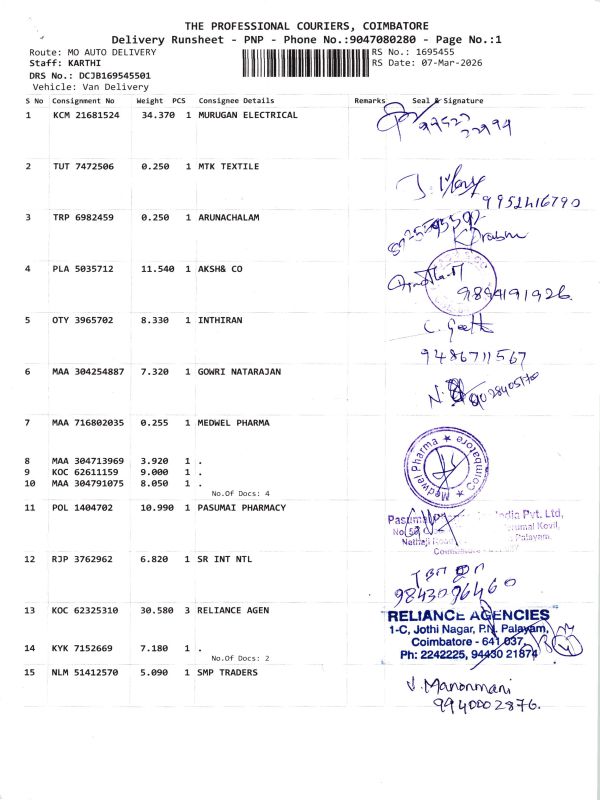 THE PROFESSIONAL COURIERS, COIMBATORE
Delivery Runsheet - PNP - Phone No.:9047080280 - Page No.:1
Route: MO AUTO DELIVERY RS No.: 1695455
Staff: KARTHI RS Date: 07-Mar-2026
DRS No.: DCJB169545501
Vehicle: Van Delivery
S No Consignment No Weight PCS Consignee Details Remarks Seal & Signature
1 KCM 21681524 34.370 1 MURUGAN ELECTRICAL
2 TUT 7472506 0.250 1 MTK TEXTILE
9952416790
3 TRP 6982459 0.250 1 ARUNACHALAM
K. Prabhu
4 PLA 5035712 11.540 1 AKSH& CO
9894191926.
5 OTY 3965702 8.330 1 INTHIRAN
C. Geetha
9486711567
6 MAA 304254887 7.320 1 GOWRI NATARAJAN
7 MAA 716802035 0.255 1 MEDWEL PHARMA
Medwel Pharma ★ Coimbatore ★
8 MAA 304713969 3.920 1 .
9 KOC 62611159 9.000 1 .
10 MAA 304791075 8.050 1 .
No.Of Docs: 4
11 POL 1404702 10.990 1 PASUMAI PHARMACY
India Pvt. Ltd,
Perumal Kovil,
Palayam,
12 RJP 3762962 6.820 1 SR INT NTL
9843096460
13 KOC 62325310 30.580 3 RELIANCE AGEN
RELIANCE AGENCIES
1-C, Jothi Nagar, P.N. Palayam,
Coimbatore - 641 037,
Ph: 2242225, 94430 21874
14 KYK 7152669 7.180 1 .
No.Of Docs: 2
15 NLM 51412570 5.090 1 SMP TRADERS
J. Manonmani
9940002876.